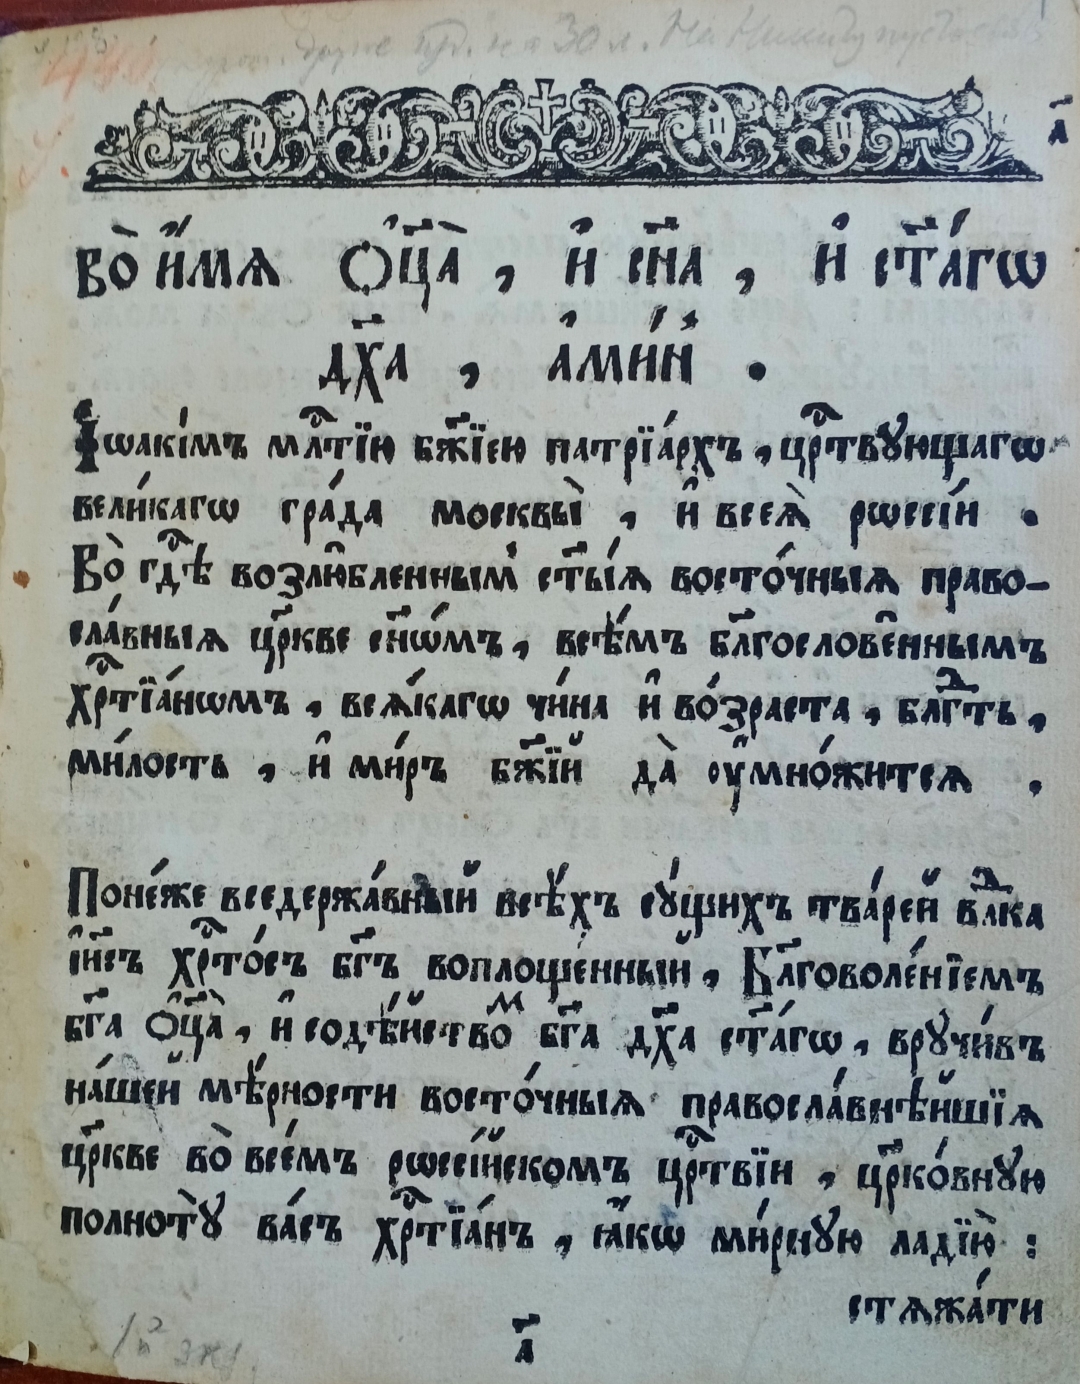 а҃
Во̀ и҆́мя ѻ҆ц҃а̀, и҆ сн҃а, и҆ ст҃а́гѡ
дх҃а, а҆ми́нь.
І҆ѡакі́мъ млⷭ҇тїю бж҃їею патрїа́рхъ, црⷭ҇твꙋющагѡ
вели́кагѡ гра́да москвы̀, и҆ всеѧ̀ рѡссі́и.
Во̀ гдⷭ҇ѣ возлю́бленнымъ ст҃ы́ѧ восто́чныѧ право-
сла́вныѧ цр҃кве сн҃ѡ́мъ, всѣ́мъ бл҃гослове́ннымъ
хрⷭ҇тїа́нѡмъ, всѧ́кагѡ чи́на и҆ во́зраста, блгⷣть,
ми́лость, и҆ ми́ръ бж҃їй да̀ ᲂу҆мно́житсѧ.
Поне́же вседержа́вный всѣ́хъ сꙋ́щихъ тва́рей влⷣка
і҆и҃съ хрⷭ҇то́съ бг҃ъ воплоще́нный, Бл҃говоле́нїемъ
бг҃а Ѻ҆ц҃а̀, и҆ содѣ́йствоⷨ бг҃а дх҃а ст҃а́гѡ, врꙋчи́въ
на́шей мѣ́рности восто́чныѧ правосла́внѣйшїѧ
цр҃кве во̀ все́мъ рѡссі́йскомъ црⷭ҇твїи, цр҃ко́внꙋю
полнотꙋ̀ ва́съ хрⷭ҇тїа́нъ, ꙗ҆́кѡ ми́рнꙋю ладїю̀:
стѧжа́ти
а҃